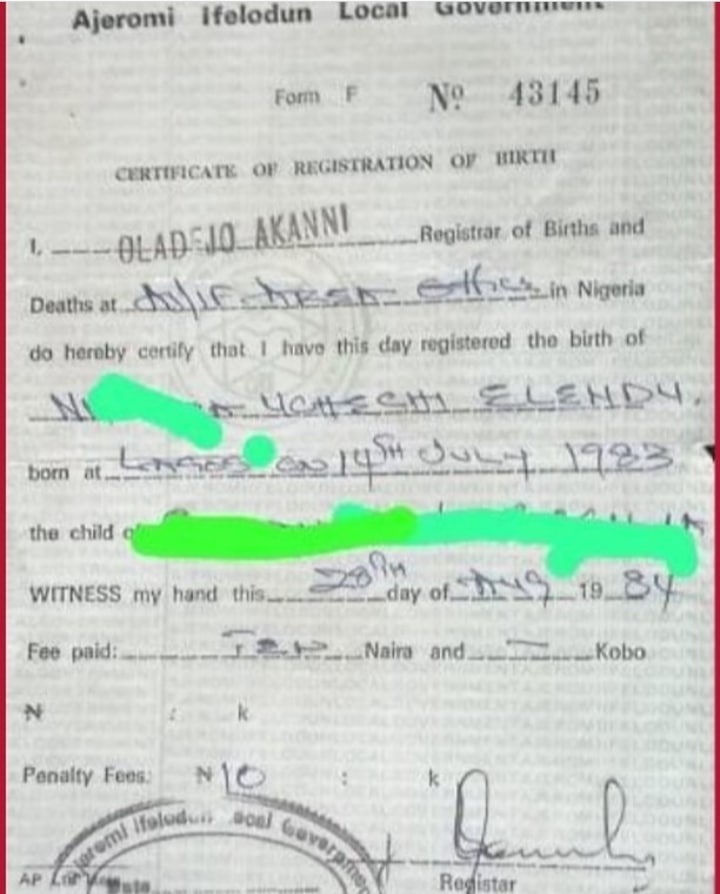 Ajeromi Ifelodun Local Government
Form F Nº 43145
CERTIFICATE OF REGISTRATION OF BIRTH
I, OLADEJO AKANNI Registrar of Births and
Deaths at Office in Nigeria
do hereby certify that I have this day registered the birth of
UCHECHI ELENDU.
born at LAGOS ON 14TH JULY 1983
the child
WITNESS my hand this 28TH day of AUG 19 84
Fee paid: TEN Naira and — Kobo
₦ : k
Penalty Fees: ₦10 : k
Ajeromi Ifelodun Local Government
Registar
Date